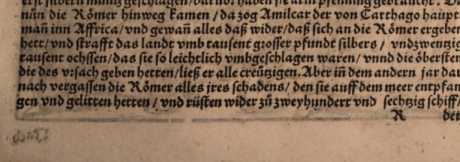 nan die Römer hinweg kamen / da zog Amilcar der von Carthago haupt
man inn Affrica / vnd gewañ alles daß wider / daß sich an die Römer ergeben
hett / vnd strafft das landt vmb tausent grosser pfundt silbers / vnd zwentzig
tausent ochssen / das sie so leichtlich vmbgeschlagen waren / vnnd die öbersten
die des vrsach geben hetten / ließ er alle creützigen. Aber in dem andern jar dar
nach vergassen die Römer alles jres schadens / den sie auff dem meer entpfan
gen vnd gelitten hetten / vnd rüsten wider zů zweyhundert vnd sechtzig schiff /
R